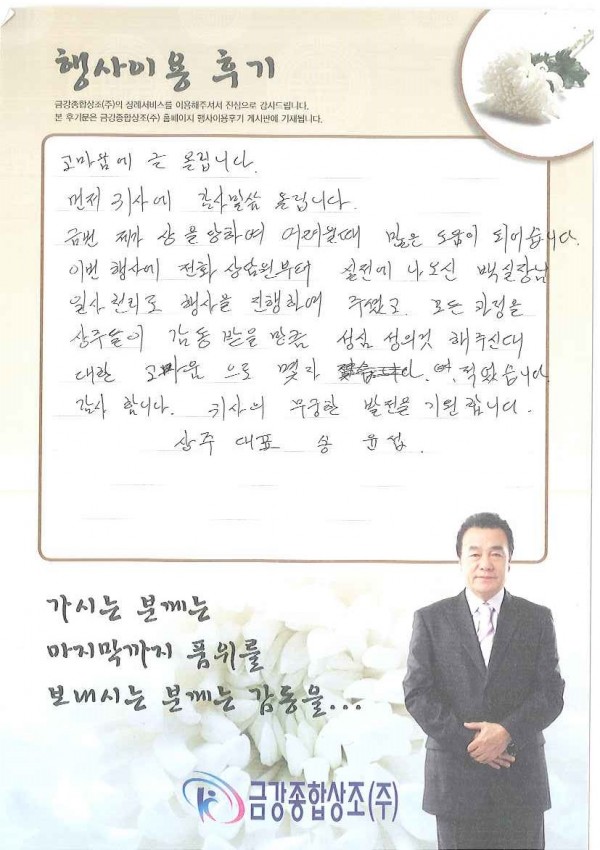 행사이용 후기
금강종합상조(주)의 장례서비스를 이용해주셔서 진심으로 감사드립니다.
본 후기문은 금강종합상조(주) 홈페이지 행사이용후기 게시판에 기재됩니다.
고마움에 글 올립니다.
먼저 귀사에 감사말씀 올립니다.
금번 제가 상을 당하여 어려울때 많은 도움이 되어습니다.
이번 행사에 전화 상담원부터 실전에 나오신 백실장님
일사천리로 행사을 진행하여 주였고. 모든 과정을
상주들이 감동 받을 만큼 성심 성의것 해주신데
대한 고마움 으로 몇자 적었습니다.
감사 합니다. 귀사의 무궁한 발전을 기원합니다.
상주 대표 송 윤 섭.
가시는 분께는
마지막까지 품위를
보내시는 분께는 감동을...
금강종합상조(주)